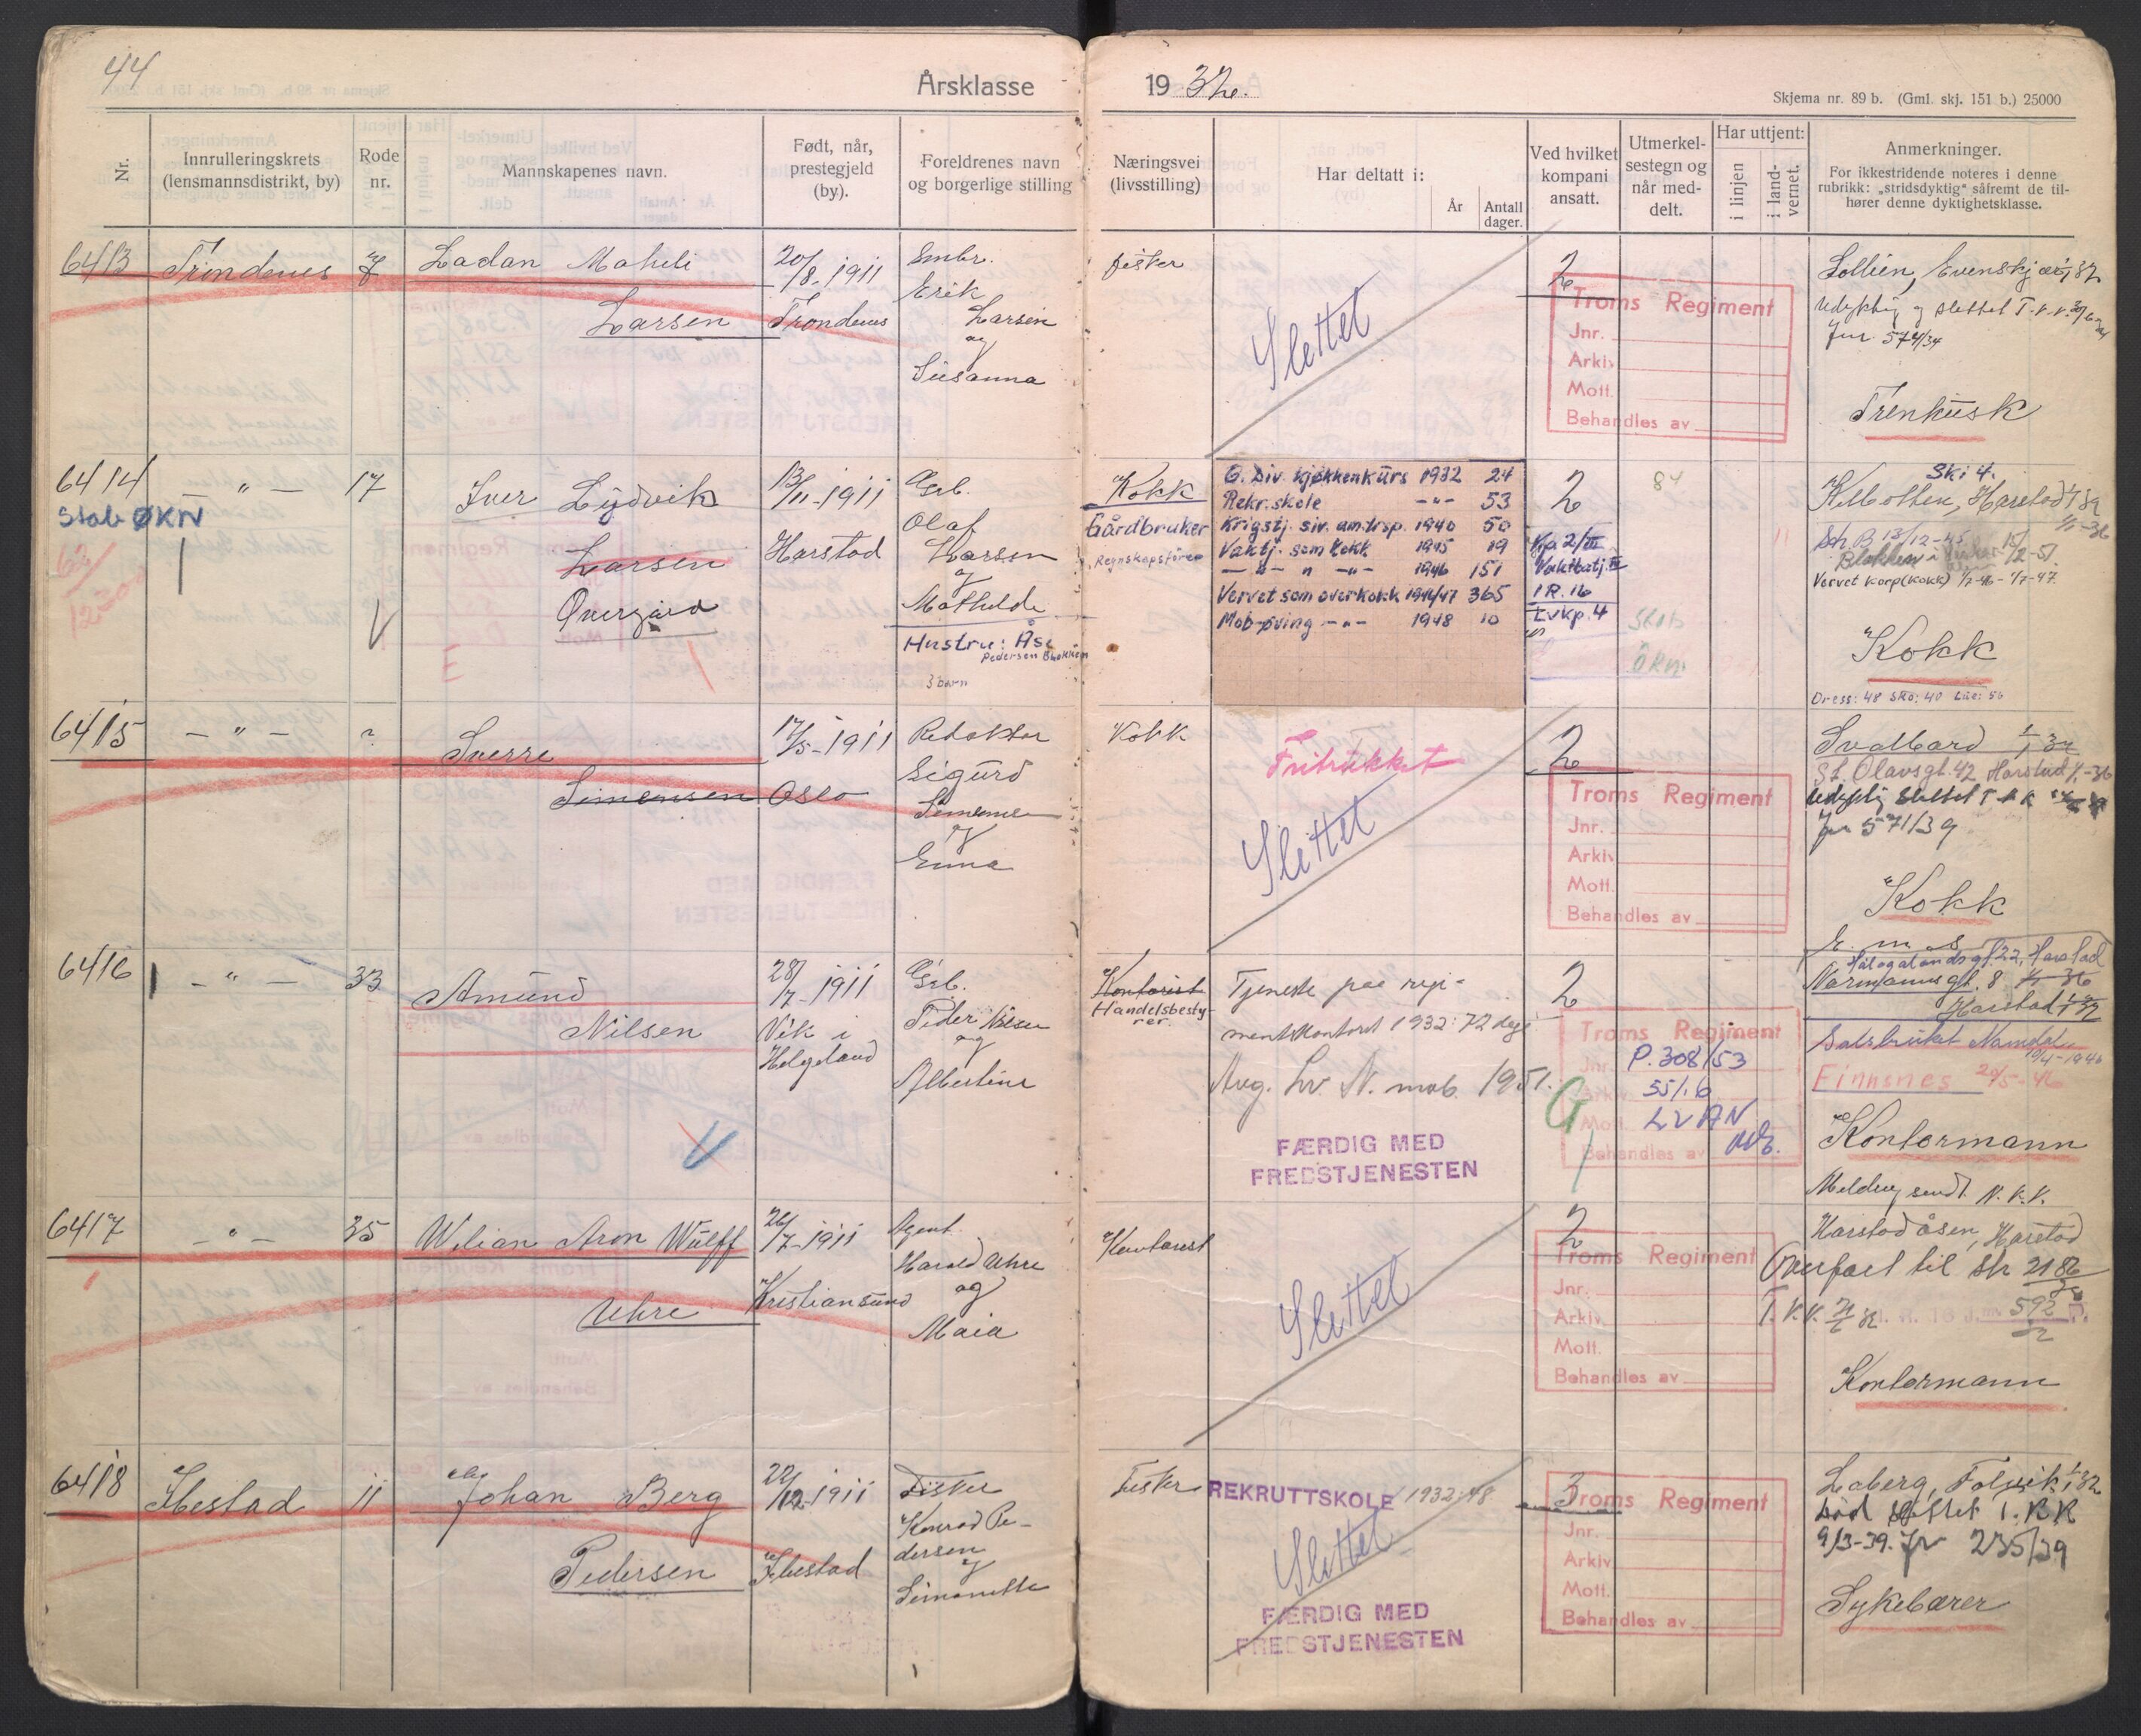 44
Årsklasse 1932.
Skjema nr. 89 b. (Gml. skj. 151 b.) 25000
Nr.
Innrulleringskrets (lensmannsdistrikt, by)
Rode nr.
Mannskapenes navn.
Født, når, prestegjeld (by).
Foreldrenes navn og borgerlige stilling
Næringsvei (livsstilling)
Har deltatt i:
År
Antall dager.
Ved hvilket kompani ansatt.
Utmerkelsestegn og når meddelt.
Har uttjent:
i linjen
i landvernet.
Anmerkninger.
For ikkestridende noteres i denne rubrikk: „stridsdyktig“ såfremt de tilhører denne dyktighetsklasse.
6413
Trondenes
7
Ladan
Larsen
20/8-1911
Trondenes
Smbr.
Erik
Larsen
og
Susanna
fisker
Slettet
2
Troms Regiment
Jnr.
Arkiv
Mott.
Behandles av
Evenskjær 1/1 32
Udyktig og slettet T.V.V.
Jnr 574/34
Trenkusk
6414
— " —
17
Stab ØKN
Iver Lydvik
Larsen
Overgård
E
13/11-1911
Harstad
Grb.
Olaf
Larsen
og
Mathilde
Hustru: Åse
Pedersen Blokken
3 barn
Kokk
Gårdbruker
Regnskapsfører
6. Div. kjøkkenkurs 1932 24
Rekr. skole —"— 53
Krigstj. siv. am.trsp. 1940 50
Vaktj. som kokk 1945 19
— " — " —"— 1946 151
Vervet som overkokk 1946/47 365
Mob-øving —"— 1948 10
2
Kp 2/III
Vaktbatj. III
IR. 16
Lvkp. 4
84
Stab
ØKN
Ski 4.
Harstad
Sch. B 13/12-45
Vervet korp (kokk) 1/7-46 - 1/7-47.
Kokk
Dress: 48 Sko: 40 Lue: 56
6415
— " —
?
Sverre
Simensen
17/5-1911
Oslo
Redaktør
Sigurd
Simensen
og
Emma
Kokk
Fritrukket
Slettet
2
Troms Regiment
Jnr.
Arkiv
Mott.
Behandles av
Svalbard 1/1 32
St. Olavsgt. 42 Harstad 1/1-36
Udyktig slettet
Jnr 571/39
Kokk
6416
— " —
33
Amund
Nilsen
28/7-1911
Vik i
Helgeland
Grb.
Peder Nilsen
og
Albertine
Kontorist
Handelsbestyrer.
Tjeneste paa regi-
mentskontoret 1932: 72 dager
Avg. Lv. N. mob. 1951.
FÆRDIG MED
FREDSTJENESTEN
2
G
Troms Regiment
Jnr. P. 308/53
Arkiv 55/.6
Mott. LVAN
Behandles av
Hålogalandsgt. 22, Harstad
Normannsgt. 8 1/1-36
Harstad 1/1 32
Salsbruket Namdal
10/4-1940
Finnsnes 20/5-46
Kontormann
Melding sendt N.K.K.
6417
— " —
35
Wilian Aron Wulff
Uhre
26/7-1911
Kristiansund
Agent
Harald Uhre
og
Maia
Kontorist
Slettet
2
Troms Regiment
Jnr.
Arkiv
Mott.
Behandles av
Harstadåsen, Harstad
Overført til str 2186
592
Kontormann
6418
Ibestad
11
Johan Berg
Pedersen
22/12-1911
Ibestad
Fisker
Konrad Pe-
dersen
og
Simonette
Fisker
REKRUTTSKOLE 1932: 48
Slettet
FÆRDIG MED
FREDSTJENESTEN
3
Troms Regiment
Jnr.
Arkiv
Mott.
Behandles av
Laberg, Foldvik 1/1 32
Død slettet 1. RR
9/3-39. Jnr 235/39
Sykebærer